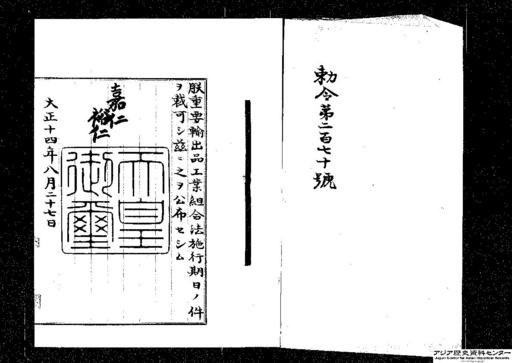 勅令第二百七十號
朕重要輸出品工業組合法施行期日ノ件
ヲ裁可シ茲ニ之ヲ公布セシム
嘉仁
裕仁
大正十四年八月二十七日
天皇
御璽
アジア歴史資料センター
Japan Center for Asian Historical Records